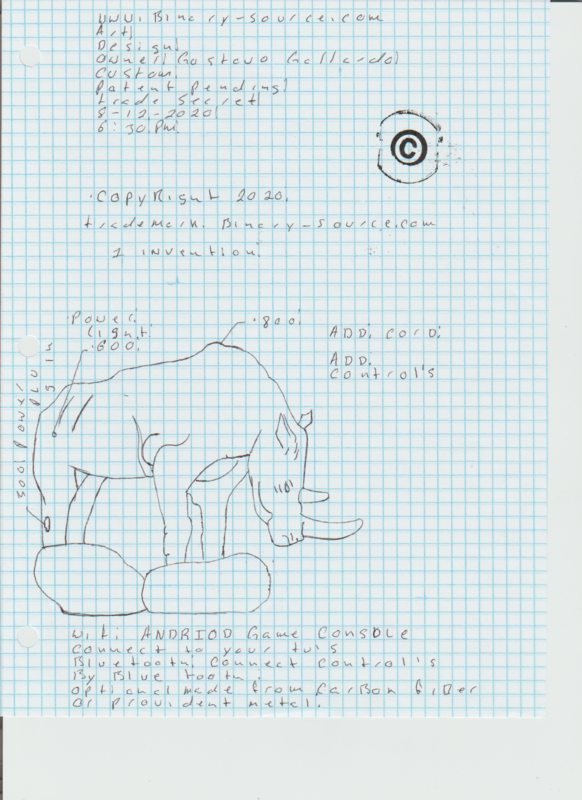 www. Binary-source.com
Art|
Design|
owner| Gustavo Gallardo|
Custom.
Patent pending|
trade secret|
8-12-2020|
6:30 PM.
©
.CopyRight 2020.
trademark. Binary-source.com
1 invention.
.Power.
light.
.600.
.800.
ADD. cord.
ADD.
Control's
500| Power
PLU
wifi ANDRIOD Game CONSOLE
connect to your tv's
Bluetooth. connect control's
By Blue tooth.
optional made from Carbon fiber
or provident metal.